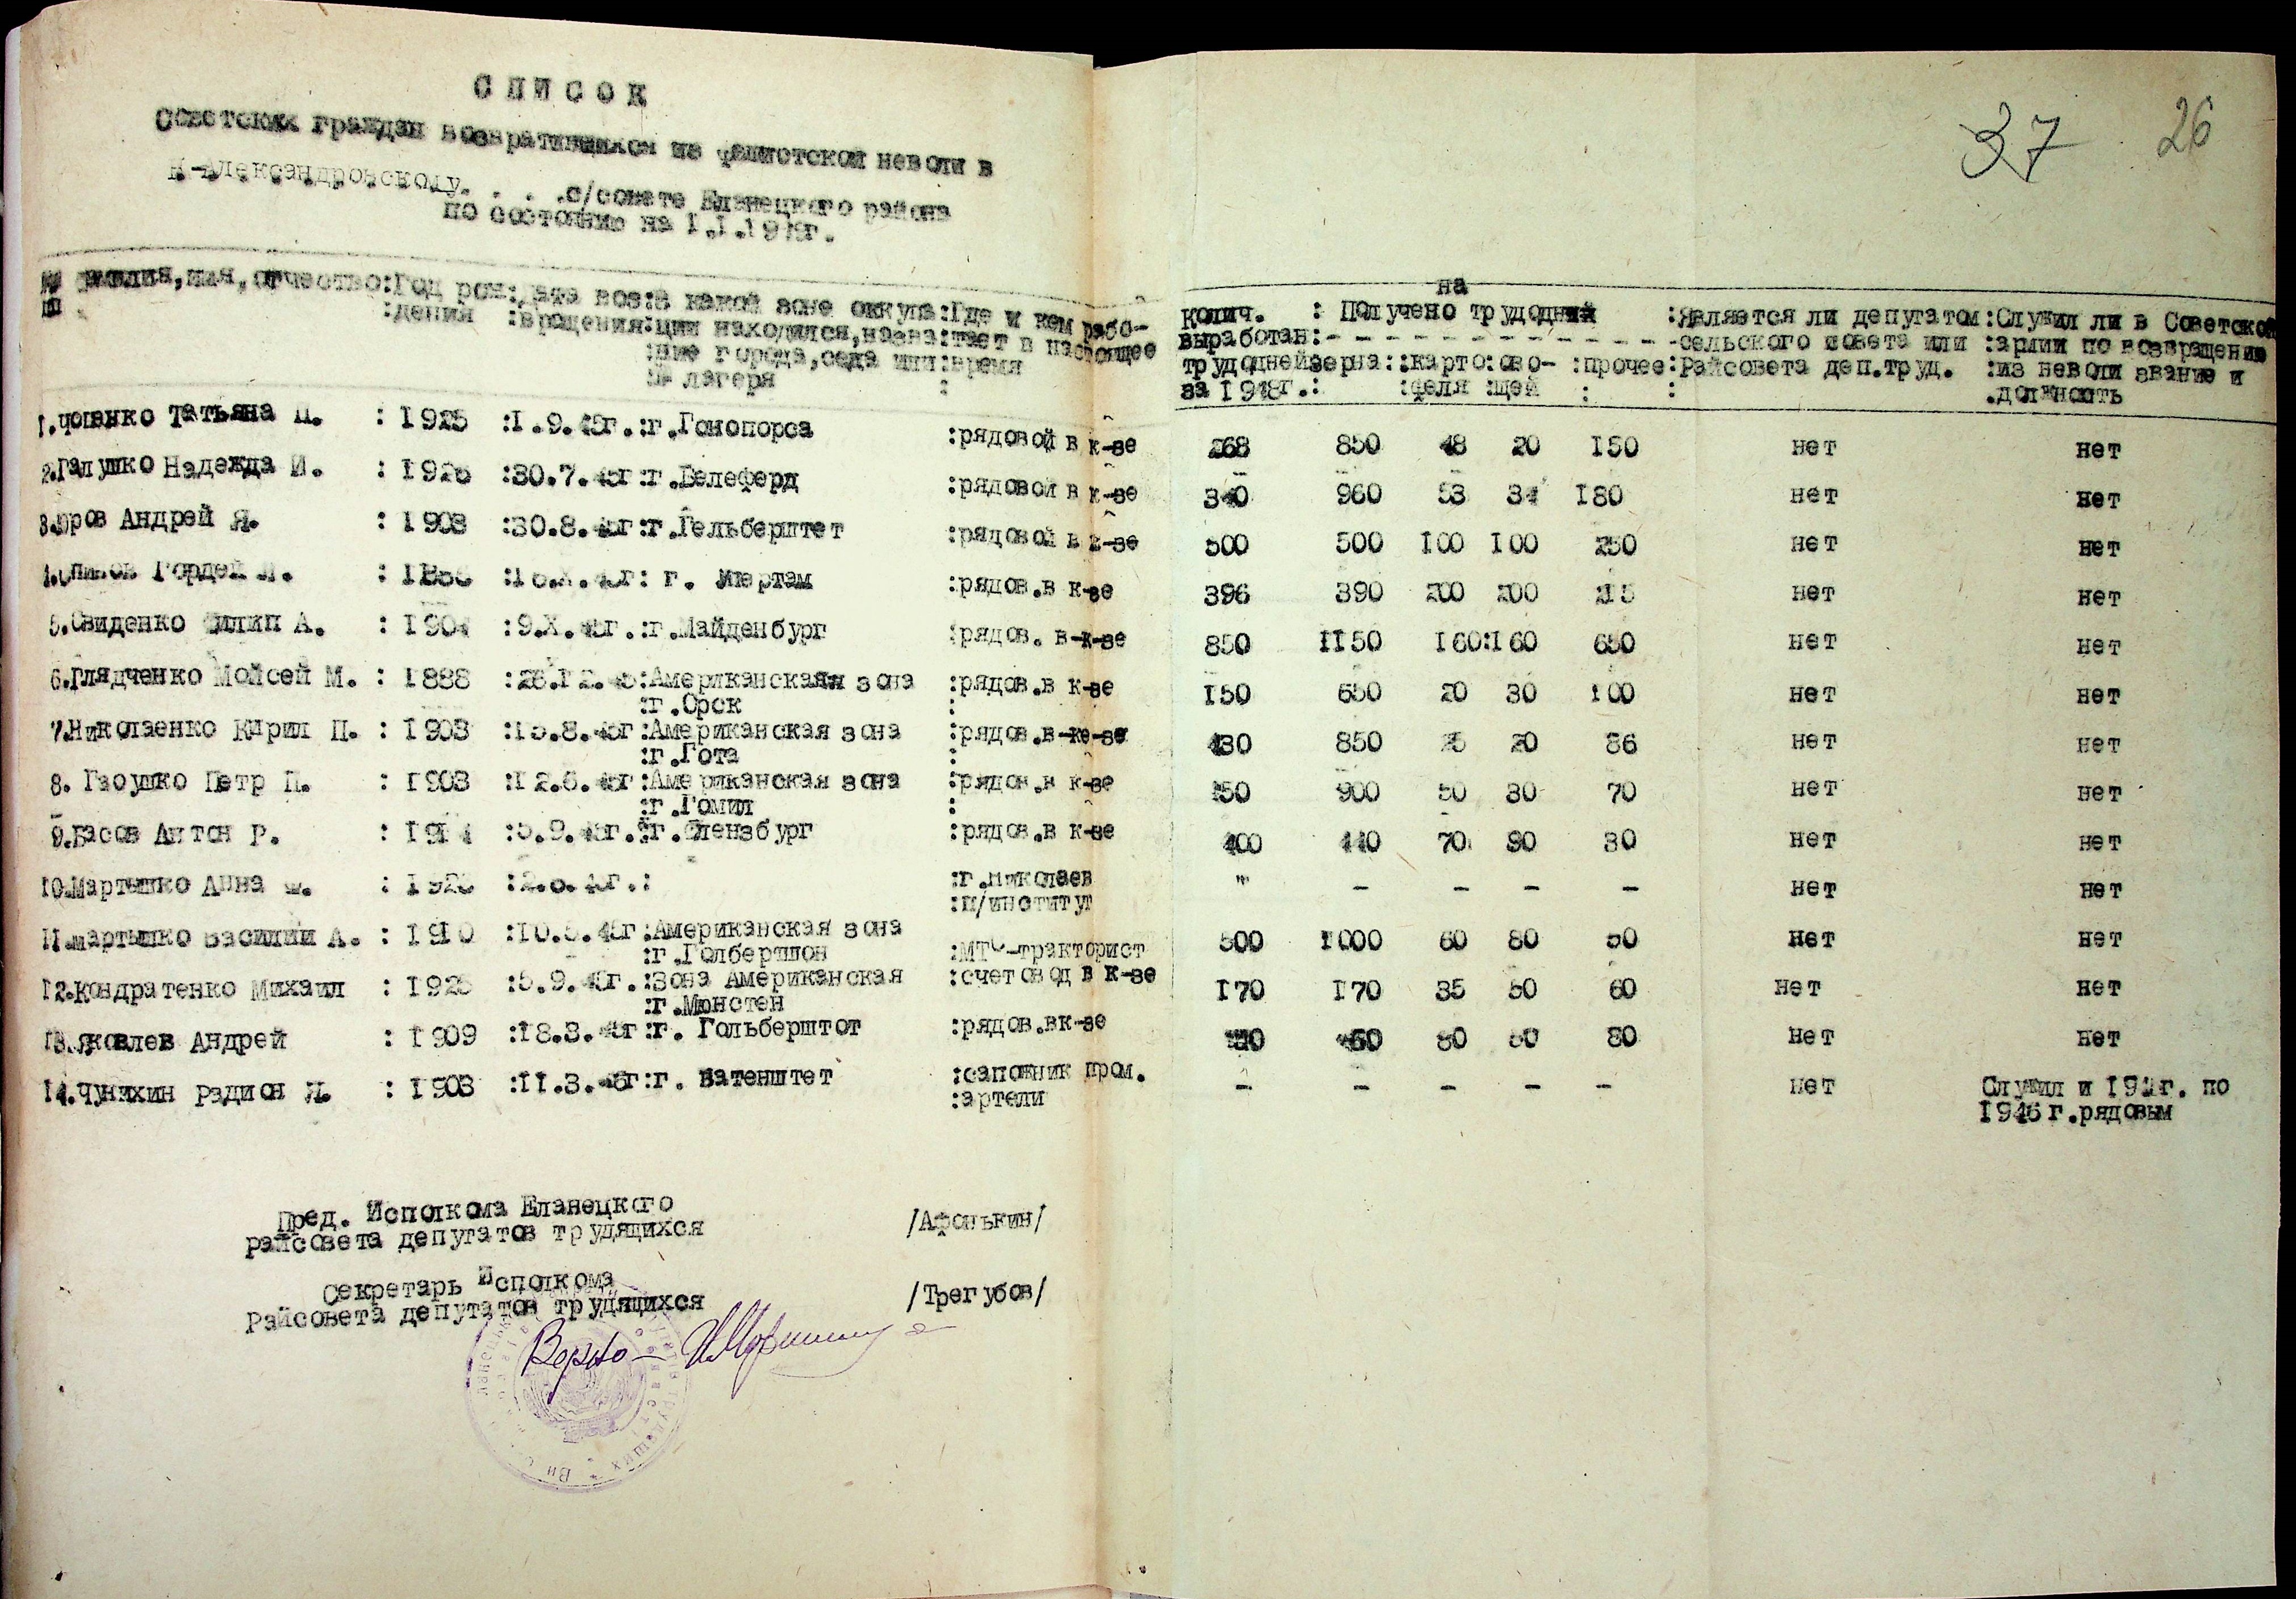 СПИСОК
37 26
Советских граждан возвратившихся из фашистской неволи в
-Александровскому. . . .с/совете Еланецкого района
по состоянию на I.I.19 г.
фамилия,имя,отчество:Год рож:дата воз:В какой зоне оккупа:Где и кем рабо-
:дения :вращения:ции находился,назва:тает в настоящее
:ние города,села или:время
лагеря :
на
колич. : Получено трудодний :Является ли депутатом:Служил ли в Советской
выработан:- - - - - - - - - - - -сельского совета или :армии по возвращению
трудоднейзерна::карто:ово- :прочее:Райсовета деп.труд. :из неволи звание и
за 1948г.: :феля :щей : : .должность
1. Татьяна П. : 1925 :I.9.45г.:г.Гонопорса :рядовой в к-зе 268 850 48 20 150 нет нет
2.Галушко Надежда И. : 1926 :30.7.45г:г.Белеферд :рядовой в к-зе 340 960 53 34 180 нет нет
3. Андрей Я. : 1903 :30.8.45г:г.Гельберштет :рядовой в к-зе 500 500 100 100 250 нет нет
4. Гордей : :г. :рядов.в к-зе 396 390 200 200 215 нет нет
5.Свиденко Филип А. : 1904 :9.X.45г.:г.Майденбург :рядов. в-к-зе 850 1150 160:160 650 нет нет
6.Глядченко Мойсей М. : 1888 :26.12.45:Американскаяя зона :рядов.в к-зе 150 650 20 30 100 нет нет
:г.Орск :
7.Николаенко Кирил П. : 1903 :15.8.45г:Американская зона :рядов.в-ке-зе 430 850 25 20 86 нет нет
:г.Гота :
8. Гаоушко Петр П. : 1903 :12.6.45г:Американская зона :рядов.в к-зе 900 50 30 70 нет нет
:г.Гомил :
9.Басов Антон Р. : :5.9.45г.:г.Флензбург :рядов.в к-зе 400 440 70 90 30 нет нет
10.Мартышко Анна : :г.Николаев " - - - - нет нет
:п/институт
11.Мартышко Василий А. : 1910 :10.5.45г:Американская зона 500 1000 60 80 50 нет нет
:г.Голбершпон :МТС-тракторист
12.Кондратенко Михаил : 1925 :5.9.45г.:Зона Американская :счетовод в к-зе 170 170 35 50 60 нет нет
:г.Мюнстен
13.Яковлев Андрей : 1909 :18.3.45г:г. Гольберштот :рядов.вк-зе 80 50 80 нет нет
14.Чунихин Радион : 1903 :11.3.45г:г. Ватенштет :сапожник пром. - - - - - нет Служил и г. по
:артели 1946г.рядовым
Пред. Исполкома Еланецкого
райсовета депутатов трудящихся /Афонькин/
Секретарь Исполкома
Райсовета депутатов трудящихся /Трегубов/
Верно —